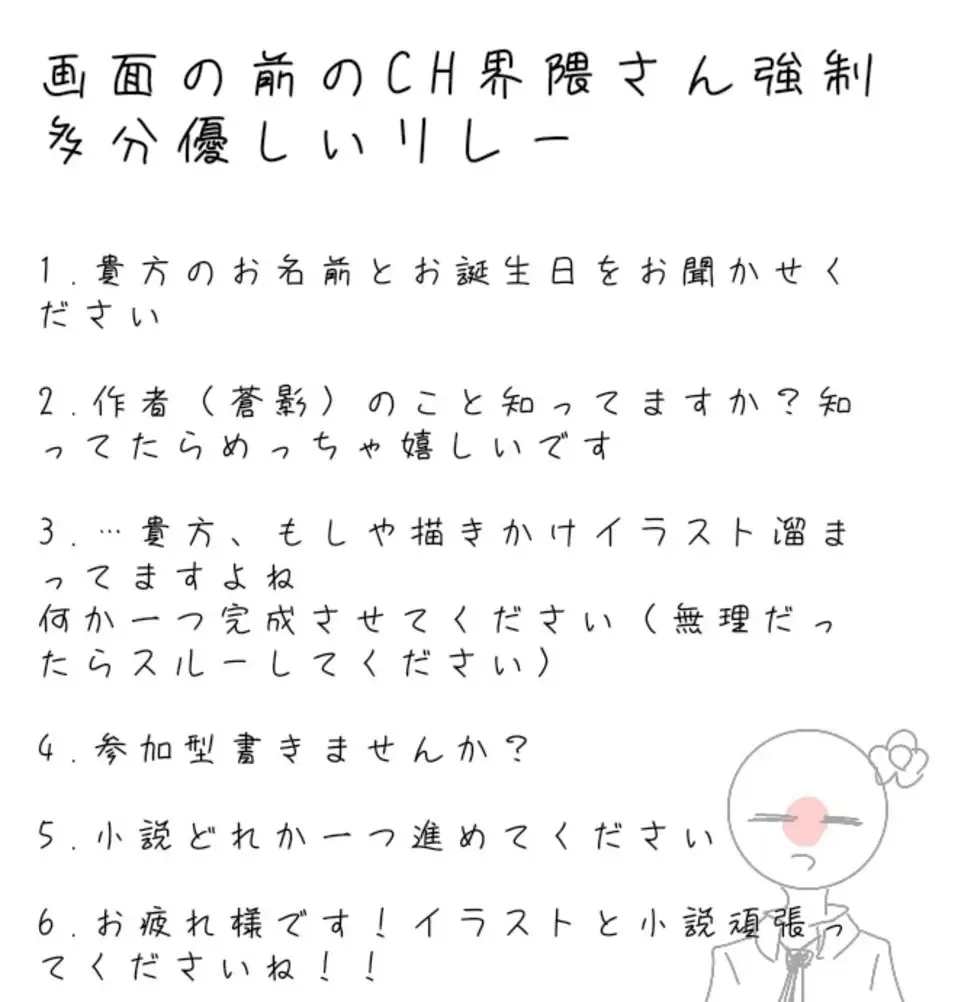 画面の前のCH界隈さん強制
多分優しいリレー
1.貴方のお名前とお誕生日をお聞かせく
ださい
2.作者(蒼影)のこと知ってますか?知
ってたらめっちゃ嬉しいです
3.…貴方、もしや描きかけイラスト溜ま
ってますよね
何か一つ完成させてください(無理だっ
たらスルーしてください)
4.参加型書きませんか?
5.小説どれか一つ進めてください
6.お疲れ様です!イラストと小説頑張っ
てくださいね!!